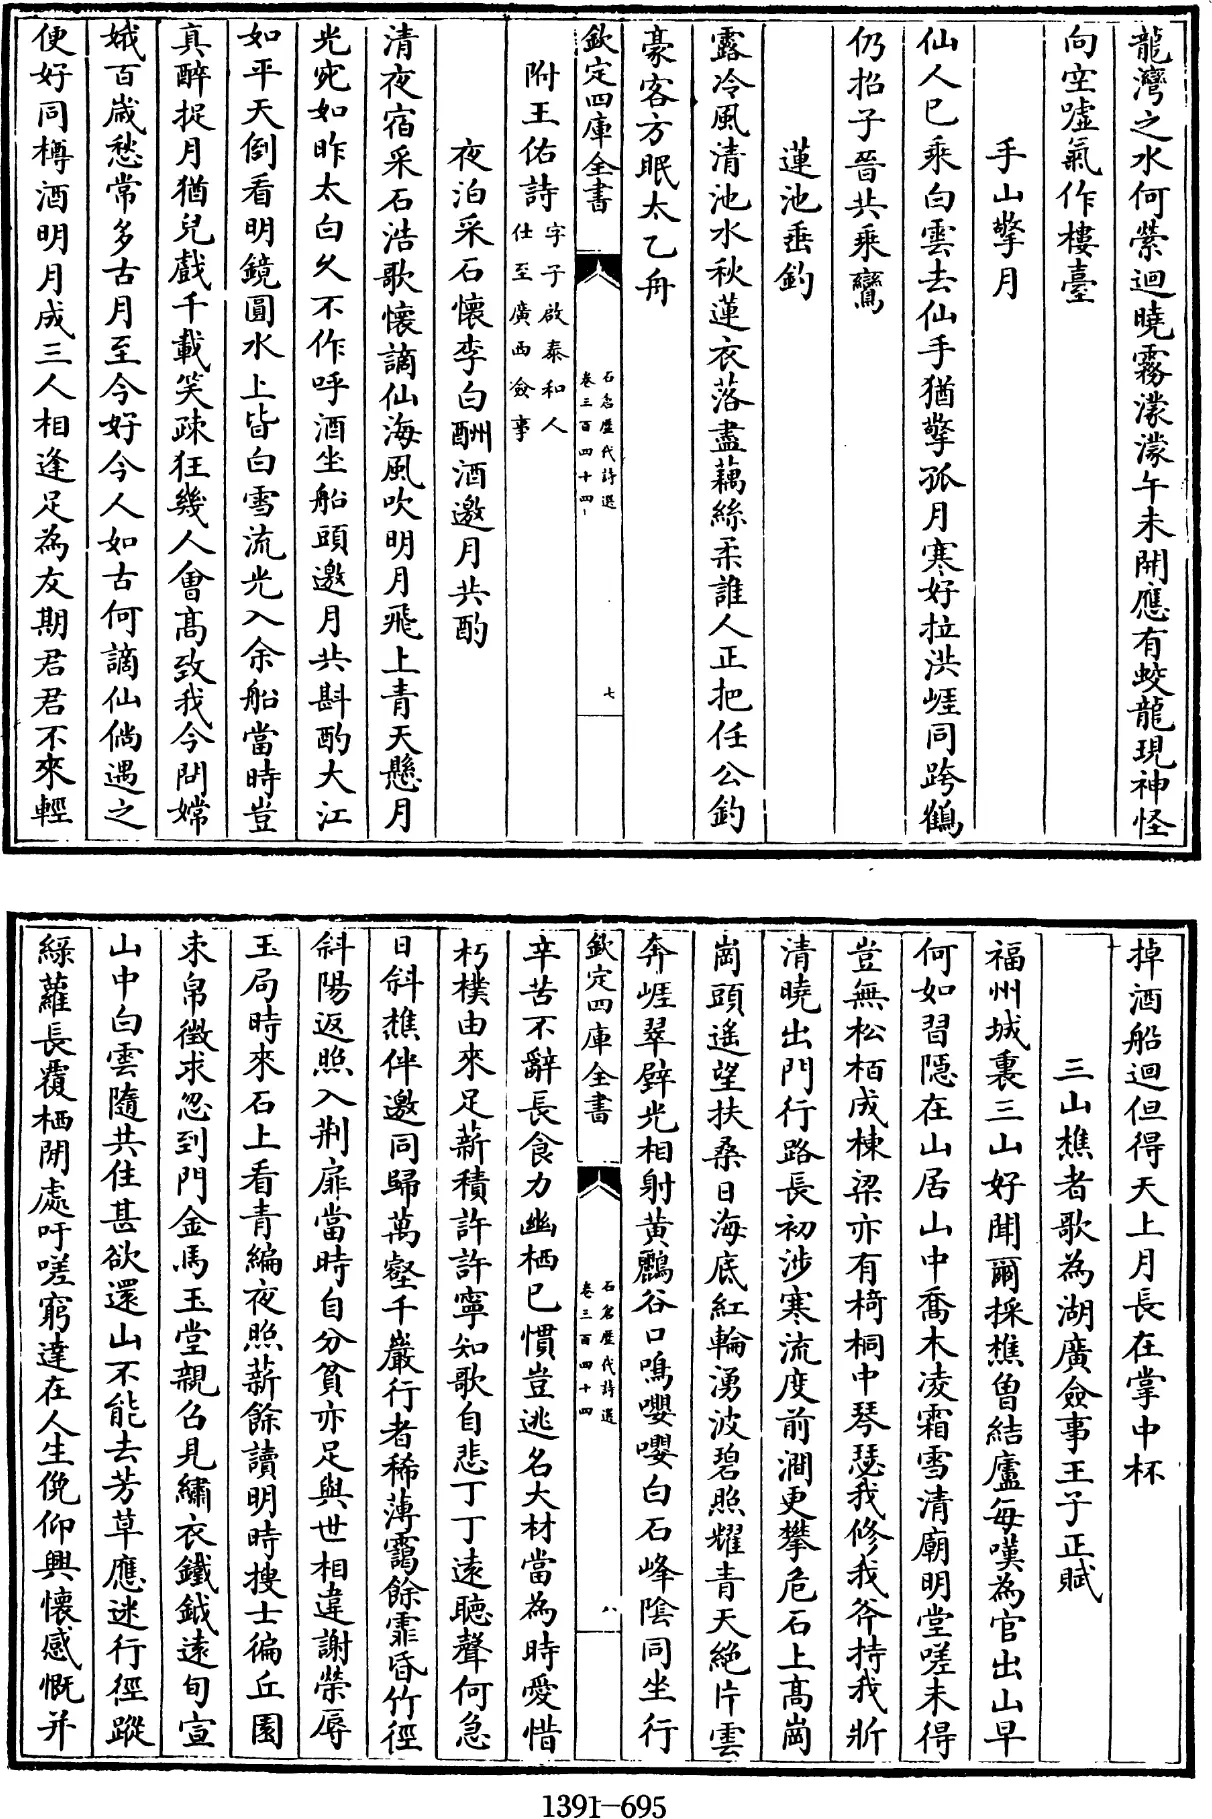 龍灣之水何縈迴曉霧濛濛午未開應有蛟龍現神怪
向空噓氣作樓臺
手山擎月
仙人已乘白雲去仙手猶擎孤月寒好拉洪崕同跨鶴
仍招子晉共乘鸞
蓮池垂釣
露冷風清池水秋蓮衣落盡藕絲柔誰人正把任公釣
豪客方眠太乙舟
欽定四庫全書
石倉歷代詩選
卷三百四十四
七
附王佑詩
字子啟泰和人
仕至廣西僉事
夜泊采石懷李白酬酒邀月共酌
清夜宿采石浩歌懷謫仙海風吹明月飛上青天懸月
光宛如昨太白久不作呼酒坐船頭邀月共斟酌大江
如平天倒看明鏡圓水上皆白雪流光入余船當時豈
真醉捉月猶兒戲千載笑疎狂幾人會高致我今問嫦
娥百歲愁常多古月至今好今人如古何謫仙倘遇之
便好同樽酒明月成三人相逢足為友期君君不來輕
掉酒船迴但得天上月長在掌中杯
三山樵者歌為湖廣僉事王子正賦
福州城裏三山好聞爾採樵曽結廬每嘆為官出山早
何如習隱在山居山中喬木凌霜雪清廟明堂嗟未得
豈無松栢成棟梁亦有椅桐中琴瑟我修我斧持我斨
清曉出門行路長初涉寒流度前澗更攀危石上高崗
崗頭遙望扶桑日海底紅輪湧波碧照耀青天絶片雲
奔崕翠壁光相射黄鸝谷口鳴嚶嚶白石峰陰同坐行
欽定四庫全書
石倉歷代詩選
卷三百四十四
八
辛苦不辭長食力幽栖已慣豈逃名大材當為時愛惜
朽樸由來足薪積許許寧知歌自悲丁丁遠聽聲何急
日斜樵伴邀同歸萬壑千巖行者稀薄靄餘霏昏竹徑
斜陽返照入荆扉當時自分貧亦足與世相違謝榮辱
玉局時來石上看青編夜照薪餘讀明時搜士徧丘園
束帛徵求忽到門金馬玉堂親召見繡衣鐵鉞遠旬宣
山中白雲隨共住甚欲還山不能去芳草應迷行徑蹤
綠蘿長覆栖閒處吁嗟窮達在人生俛仰興懷感慨并
1391-695